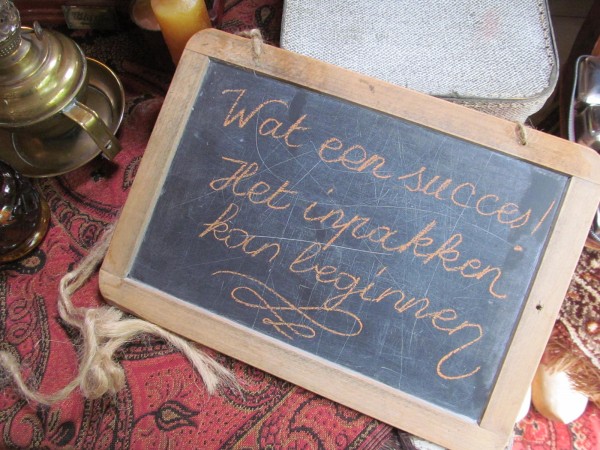 Wat een succes!
Het inpakken
kan beginnen